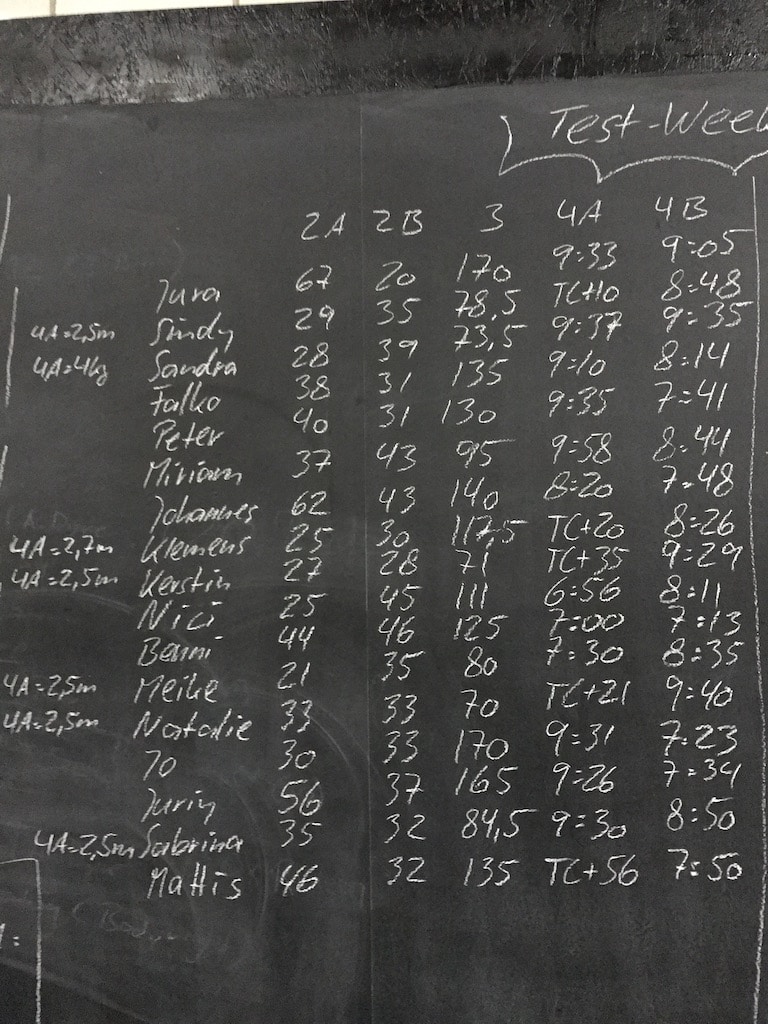 Test-Week
2A 2B 3 4A 4B
Jura 67 20 170 9:33 9:05
4A=2,5m Sindy 29 35 78,5 TC+10 8:48
4A=4kg Sandra 28 39 73,5 9:37 9:35
Falko 38 31 135 9:10 8:14
Peter 40 31 130 9:35 7:41
Miriam 37 43 95 9:58 8:44
Johannes 62 43 140 8:20 7:48
4A=2,7m Klemens 25 30 117,5 TC+20 8:26
4A=2,5m Kerstin 27 28 71 TC+35 9:29
Nici 25 45 111 6:56 8:11
Benni 44 46 125 7:00 7:13
4A=2,5m Meike 21 35 80 7:30 8:35
4A=2,5m Natalie 33 33 70 TC+21 9:40
Jo 30 33 170 9:31 7:23
Jurij 56 37 165 9:26 7:34
4A=2,5m Sabrina 35 32 84,5 9:30 8:50
Mattis 46 32 135 TC+56 7:50